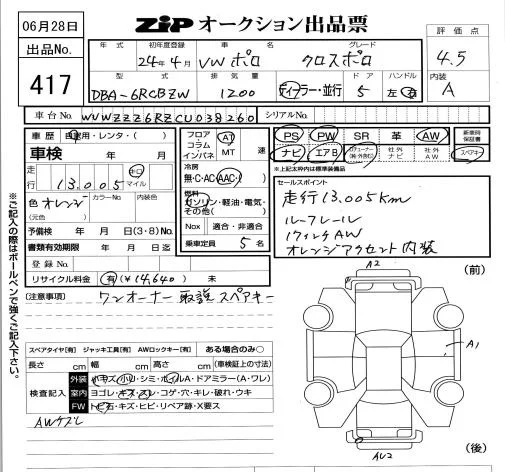 06月28日
出品No.
417
ZiP オークション出品票
年式 初年度登録 車名 グレード
24年4月 VW ポロ クロスポロ
型式 排気量 ドア ハンドル
DBA-6RCBZW 1200 ディーラー・並行 5 左・右
評価点
4.5
内装
A
車台No. WVWZZZ6RZCU038260 シリアルNo.
車歴 自家用・レンタ・( )
車検 年 月
走行 13,005 km マイル
色 オレンジ カラーNo. 内装色
(元色)
予備検 年 月 日(3・8)No.
書類有効期限 年 月 日迄
登録No.
リサイクル料金 有(¥14,640) 未
フロア コラム インパネ AT MT 速
冷房
無・C・AC・AAC
燃料
ガソリン・軽油・電気・
その他( )
Nox 適合・非適合
乗車定員 5 名
PS PW SR 革 AW 新車時保証書
ナビ エアB 社外ナビ 社外AW スペアキー
※上記太枠内は標準装備品
セールスポイント
走行13,005km
ルーフレール
17インチAW
オレンジアクセント内装
(注意事項) ワンオーナー 取説 スペアキー
※ご記入の際はボールペンで強くご記入下さい。
スペアタイヤ[有] ジャッキ工具[有] AWロックキー[有] ある場合のみ○
長さ cm 幅 cm 高さ cm (車検証上の寸法)
検査記入
外装 小キズ・小凹・シミ・ホイルA・ドアミラー(A・ワレ)
室内 ヨゴレ・キズ・スレ・コゲ・穴・キレ・破れ・ウキ
FW トビ石・キズ・ヒビ・リペア跡・X要ス
AWキズレ
A2
(前)
A1
(後)
AU2